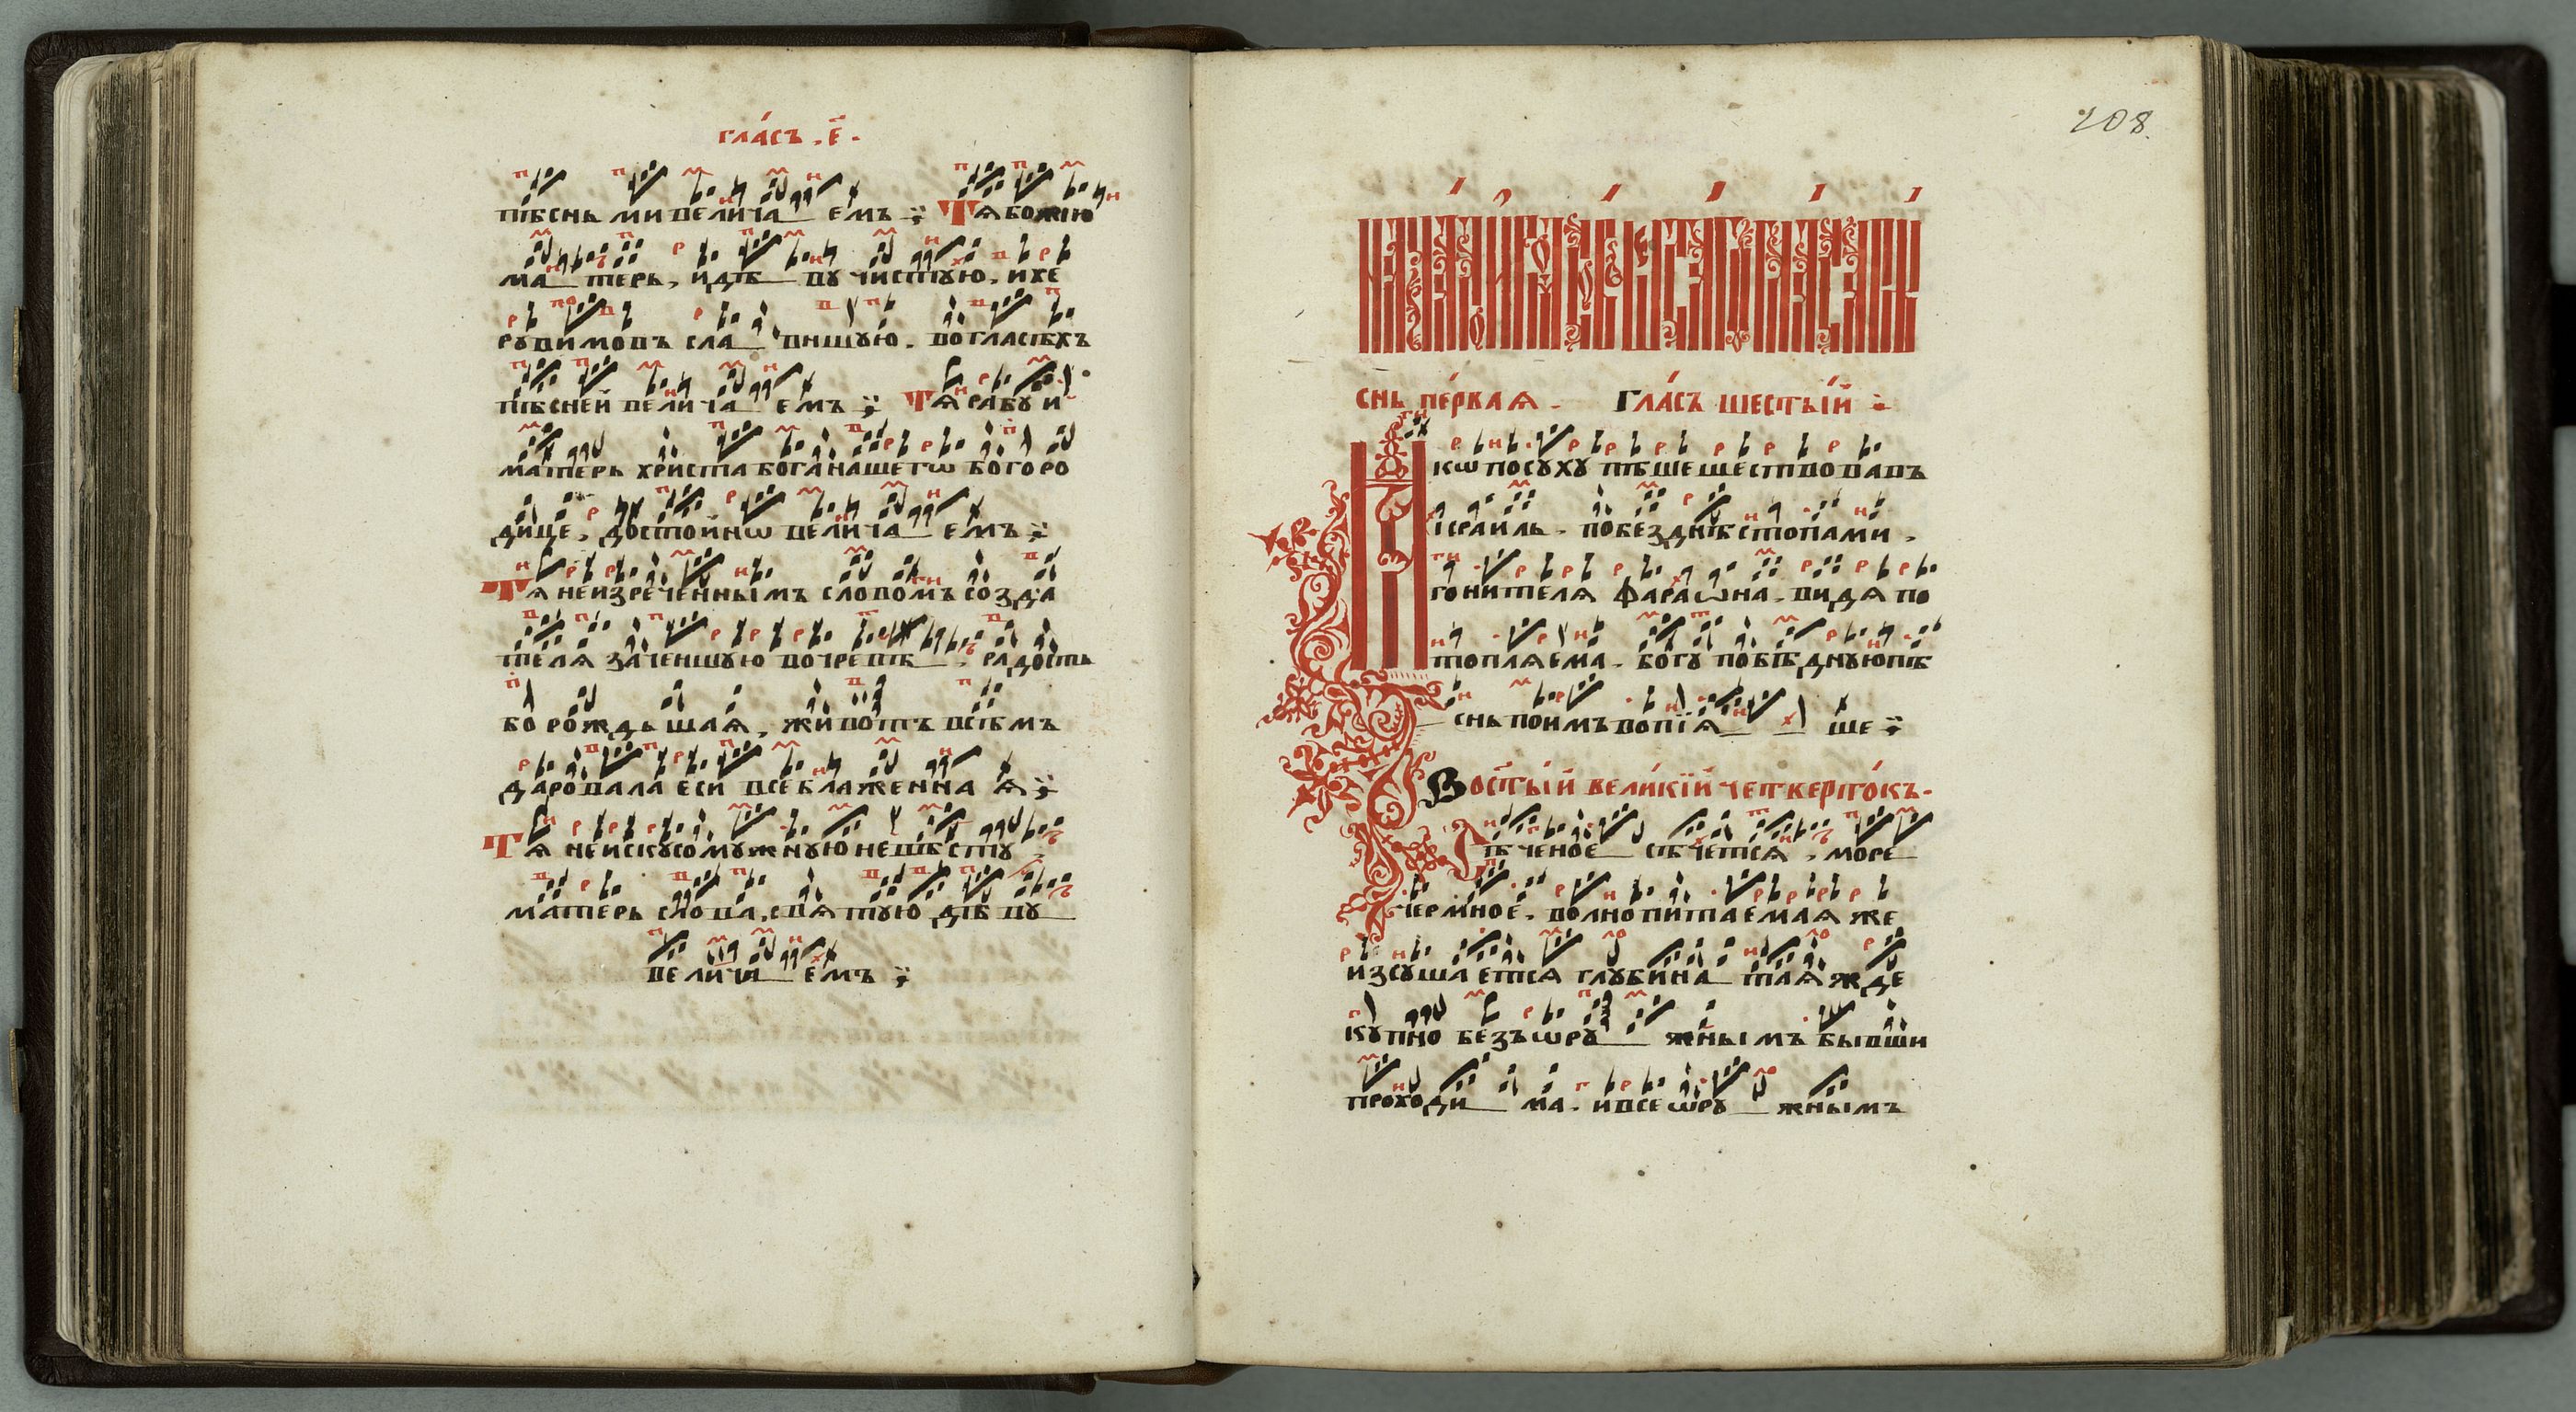 гла́съ . е҃ .
пѣснь ми велича емъ ; Тя божію
матерь , и дѣ ву чистую , и хе
рувимовъ сла внѣшую . во гласѣхъ
пѣсней велича емъ ; Тя рабу и
матерь христа бога нашегѡ богоро
дице , достойнѡ велича емъ ;
Тя неизреченнымъ словомъ созда
теля заченшую во чревѣ , радость
бо рождьшая , животъ всѣмъ
даровала еси всеблаженна я ;
Тя неискусомужную невѣсту ,
матерь слова , святую дѣ ву
велича емъ ;
208
снь пе́рвая . Гла́съ шесты́й
Якѡ посуху пѣшешествовавъ
ісраиль . по безднѣ стопами .
гонителя фараѡна . видя по
топляема . богу побѣдную пѣ
снь поимъ вопїя ше ;
Во ст҃ы́й вели́кїй четверто́къ .
Сѣченое сѣчется , море
чермное . волнопитаемая же
изсушается глубина тая жде
купно безъѡру жнымъ бывши
проходи ма . и всеѡру жнымъ